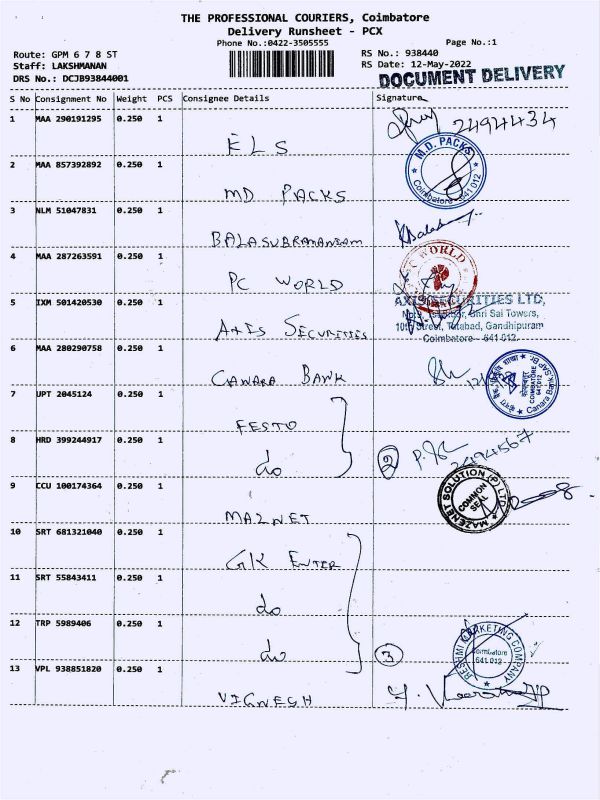 THE PROFESSIONAL COURIERS, Coimbatore
Delivery Runsheet - PCX
Phone No.:0422-3505555
Page No.:1
Route: GPM 6 7 8 ST
RS No.: 938440
Staff: LAKSHMANAN
RS Date: 12-May-2022
DRS No.: DCJB93844001
DOCUMENT DELIVERY
S No Consignment No Weight PCS Consignee Details Signature
1 MAA 290191295 0.250 1
ELS 2494434
2 MAA 857392892 0.250 1
M.D. PACKS Coimbatore - 641 012
MD PACKS
3 NLM 51047831 0.250 1
BALASUBRAMANIAM
4 MAA 287263591 0.250 1
PC WORLD
5 IXM 501420530 0.250 1
AXIS SECURITIES LTD,
Shri Sai Towers,
10th Street, Tatabad, Gandhipuram
Coimbatore - 641 012.
AXIS SECURITIES
6 MAA 280290758 0.250 1
CANARA BANK
COIMBATORE 641 012 Canara Bank
7 UPT 2045124 0.250 1
FESTO
8 HRD 399244917 0.250 1
do 2 2494567
9 CCU 100174364 0.250 1
MAZENET SOLUTION (P) LTD COMMON SEAL
MAZNET
10 SRT 681321040 0.250 1
GK ENTER
11 SRT 55843411 0.250 1
do
12 TRP 5989406 0.250 1
do 3
RESHMI MARKETING COMPANY Coimbatore 641 012
13 VPL 938851820 0.250 1
VIGNESH